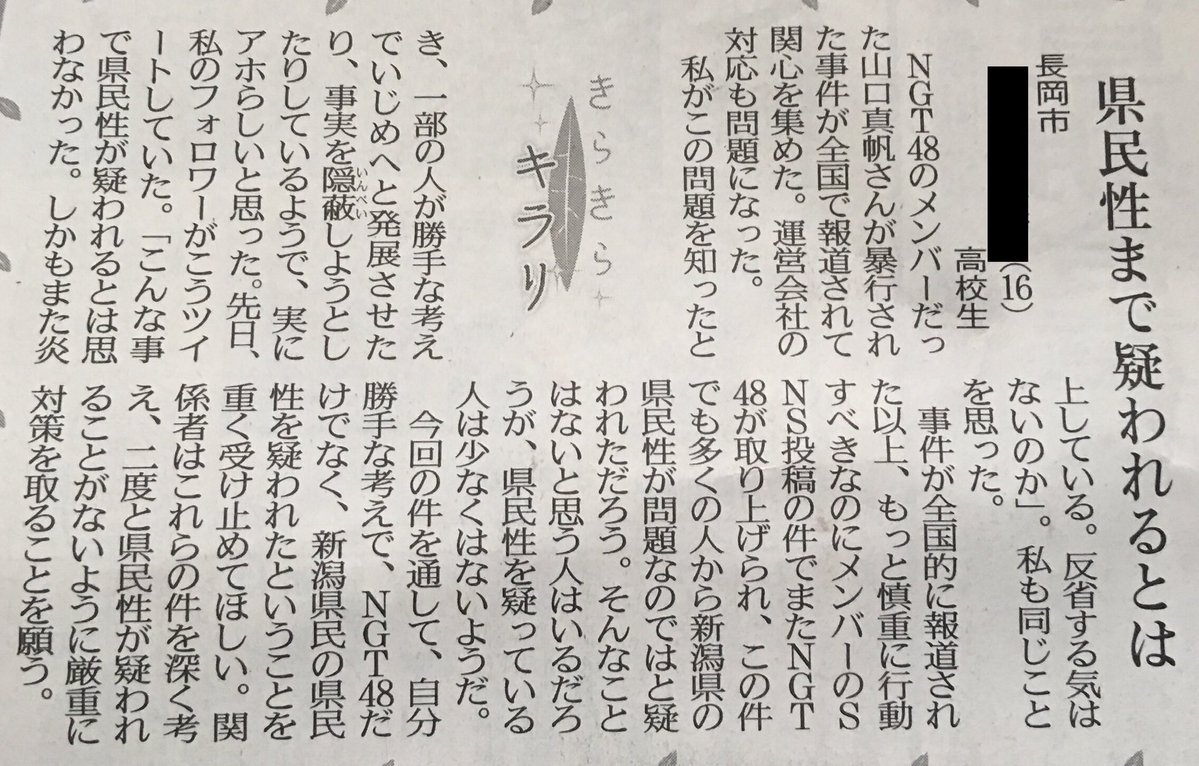 県民性まで疑われるとは
長岡市
(16)
高校生
NGT48のメンバーだっ
た山口真帆さんが暴行され
た事件が全国で報道されて
関心を集めた。運営会社の
対応も問題になった。
私がこの問題を知ったと
きらきら
キラリ
き、一部の人が勝手な考え
でいじめへと発展させた
り、事実を隠蔽しようとし
いんぺい
たりしているようで、実に
アホらしいと思った。先日、
私のフォロワーがこうツイ
ートしていた。「こんな事
で県民性が疑われるとは思
わなかった。しかもまた炎
上している。反省する気は
ないのか」。私も同じこと
を思った。
事件が全国的に報道され
た以上、もっと慎重に行動
すべきなのにメンバーのS
NS投稿の件でまたNGT
48が取り上げられ、この件
でも多くの人から新潟県の
県民性が問題なのではと疑
われただろう。そんなこと
はないと思う人はいるだろ
うが、県民性を疑っている
人は少なくはないようだ。
今回の件を通して、自分
勝手な考えで、NGT48だ
けでなく、新潟県民の県民
性を疑われたということを
重く受け止めてほしい。関
係者はこれらの件を深く考
え、二度と県民性が疑われ
ることがないように厳重に
対策を取ることを願う。